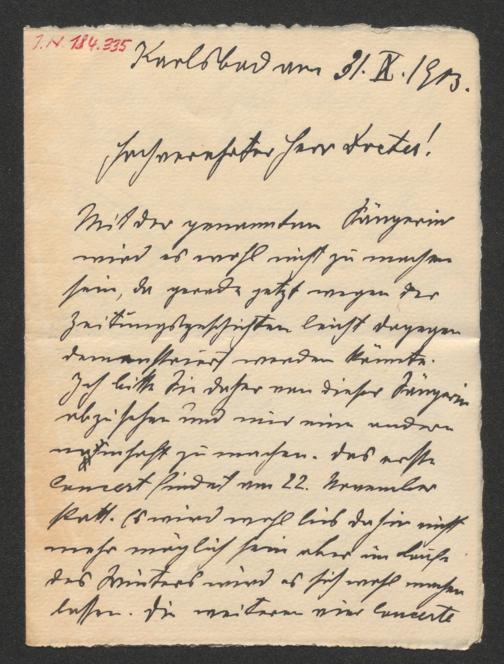 I.N. 184.335
Karlsbad am 31. X. 1903.
Hochverehrter Herr Doctor!
Mit der genannten Sängerin
wird es wohl nicht zu machen
sein, da gerade jetzt wegen der
Zeitungsgeschichten leicht dagegen
demonstriert werden könnte.
Ich bitte Sie daher von dieser Sängerin
abzusehen und mir eine andere
namhaft zu machen. Das erste
Concert findet am 22. November
statt. Es wird wohl bis dahin nicht
mehr möglich sein aber im Laufe
des Winters wird es sich wohl machen
lassen. Die weiteren vier Concerte